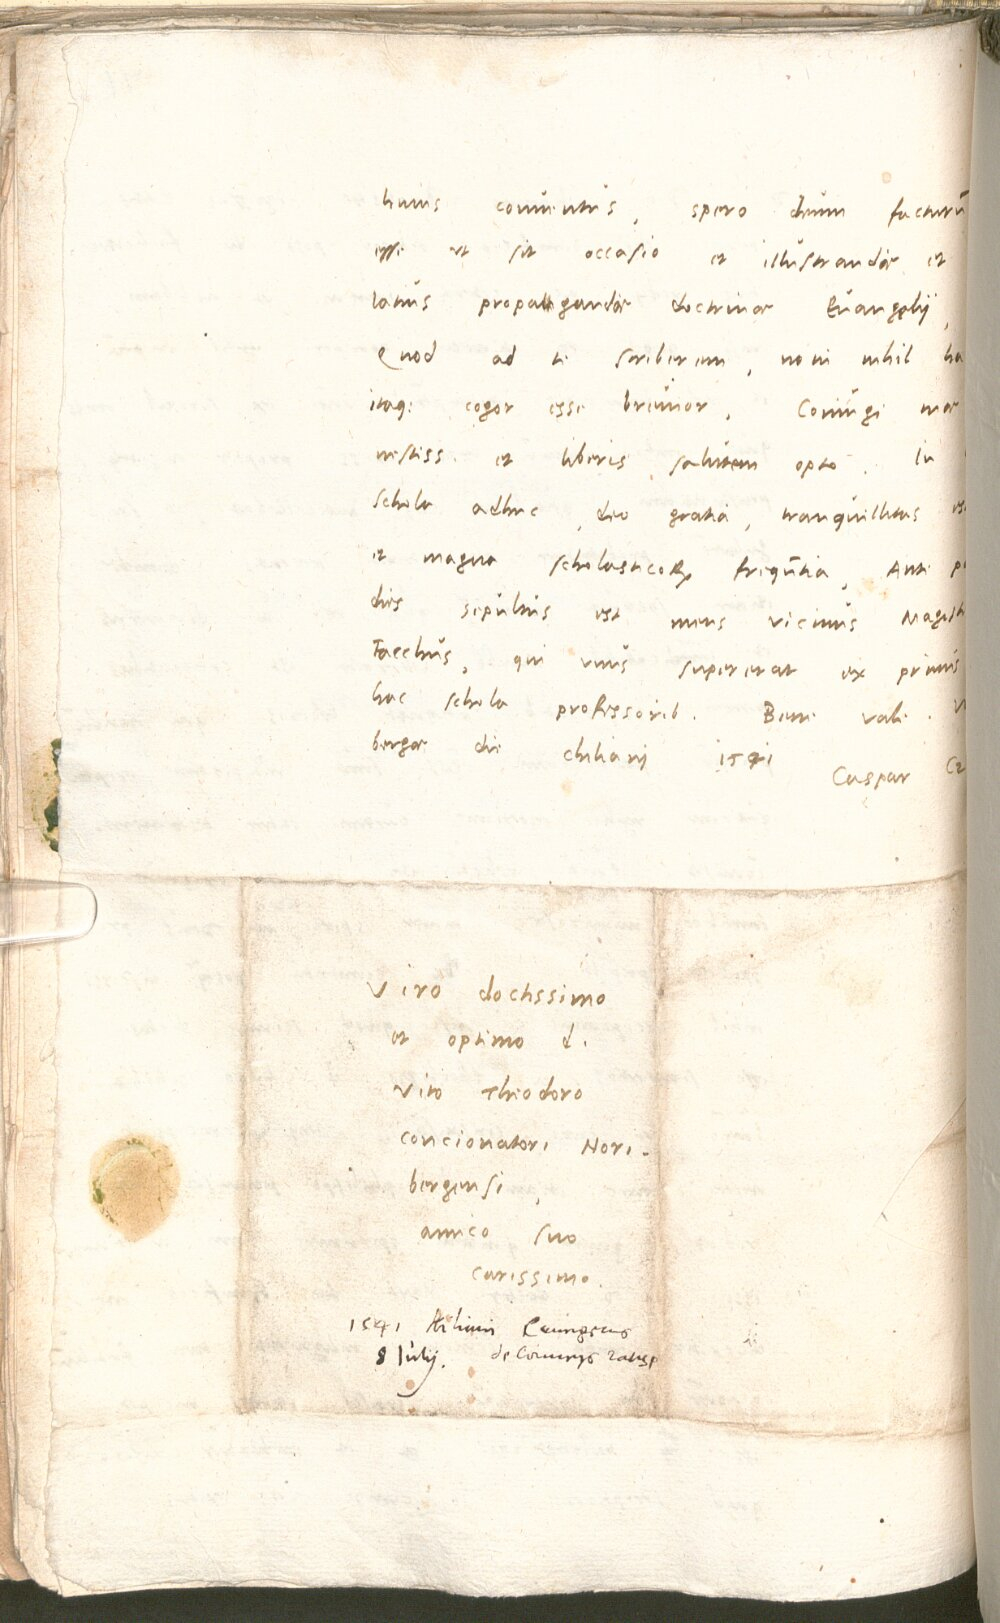 huius conventus, spero deum facturū
esse ut sit occasio et illustrandæ et
latius propagandæ doctrinæ Euangelij,
Quod ad te scriberem, novi nihil ha
itaq; cogor esse brevior. Coniugi
nestiss. et liberis salutem opto. In
schola adhuc, deo gratia, tranquillitas es
et magna scholasticoꝝ frequētia, Ante
dies sepultus est meus vicinus Magist
Faechus, qui unus supererat ex primis
hac schola professorib. Bene vale.
bergæ die chiliani 1541
Caspar
Viro doctissimo
et optimo d.
Vito Theodoro
concionatori Nori-
bergensi,
amico suo
carissimo.
1541
8 Iulij. de